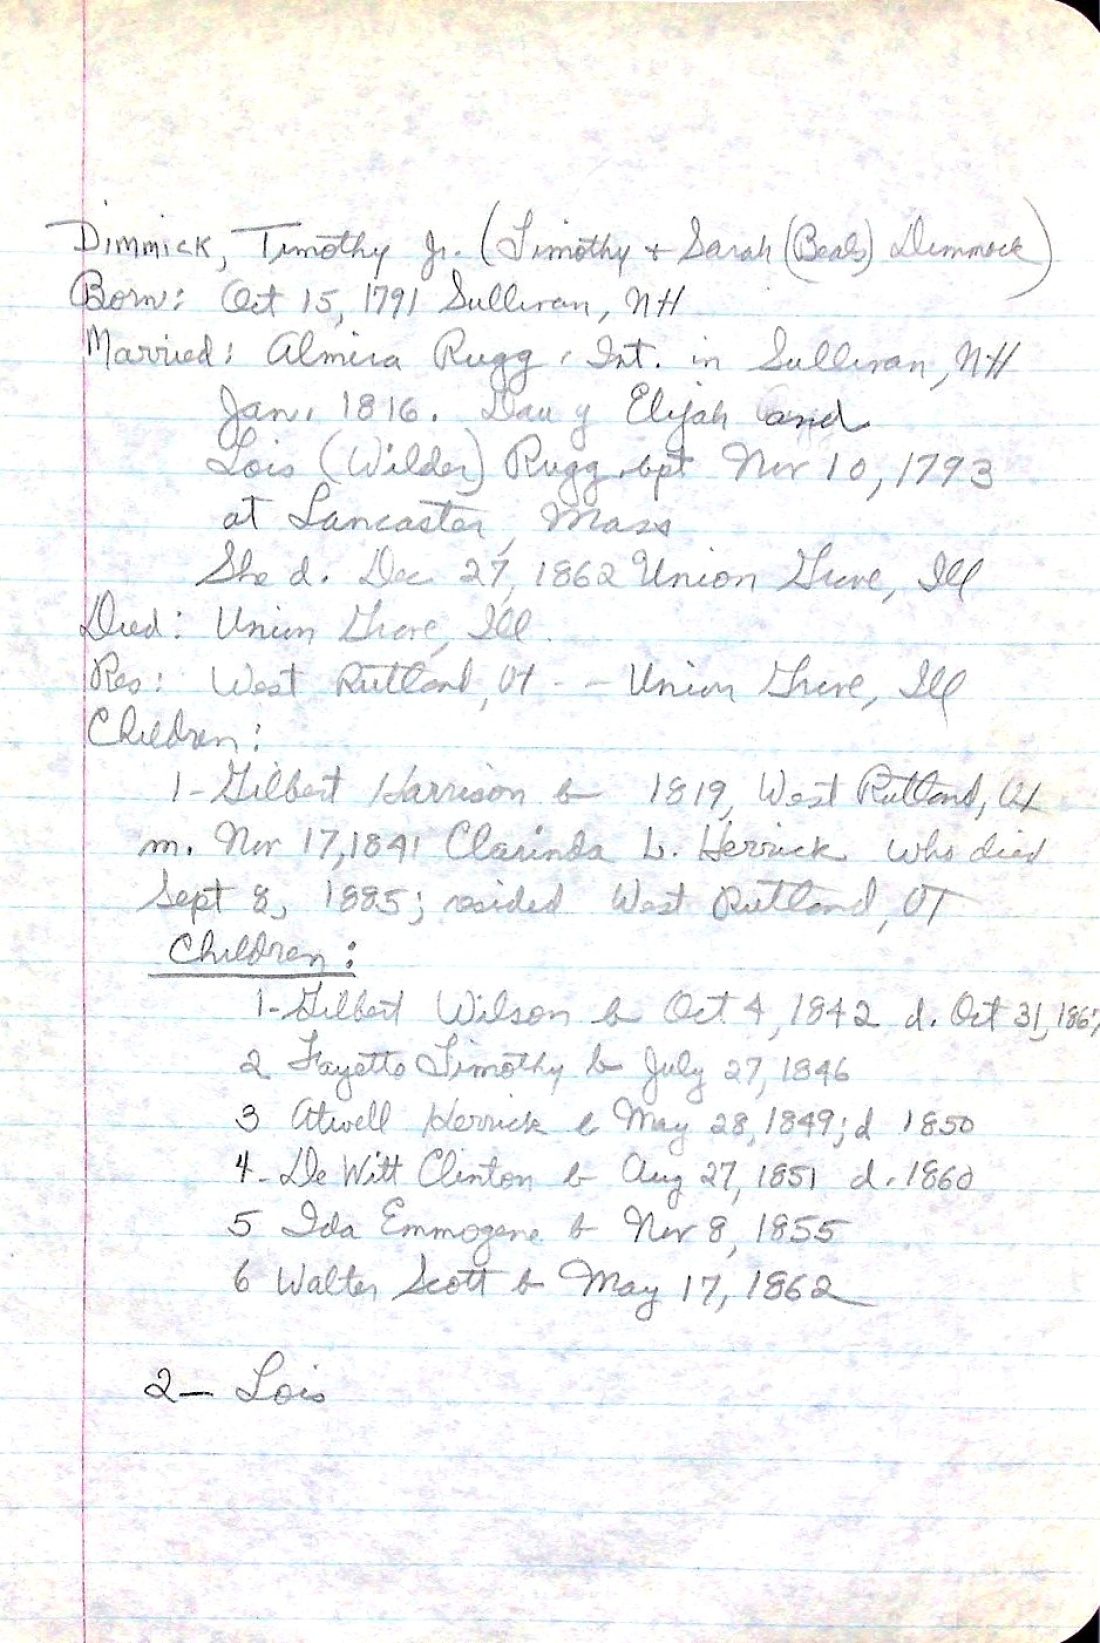 Dimmick, Timothy Jr. (Timothy + Sarah (Beals) Dimmock)
Born: Oct 15, 1791 Sullivan, NH
Married: Almira Rugg, Int. in Sullivan, NH
Jan. 1816. Dau of Elijah and
Lois (Wilder) Rugg, bpt Nov 10, 1793
at Lancaster, Mass
She d. Dec 27, 1862 Union Grove, Ill
Died: Union Grove, Ill.
Res: West Rutland, Vt -- Union Grove, Ill
Children:
1- Gilbert Harrison b 1819, West Rutland, Vt
m. Nov 17, 1841 Clarinda L. Herrick who died
Sept 8, 1885; resided West Rutland, VT
Children:
1- Gilbert Wilson b Oct 4, 1842 d. Oct 31,
2 Fayette Timothy b July 27, 1846
3 Atwell Herrick b May 28, 1849; d 1850
4- De Witt Clinton b Aug 27, 1851 d. 1860
5 Ida Emmogene b Nov 8, 1855
6 Walter Scott b May 17, 1862
2- Lois